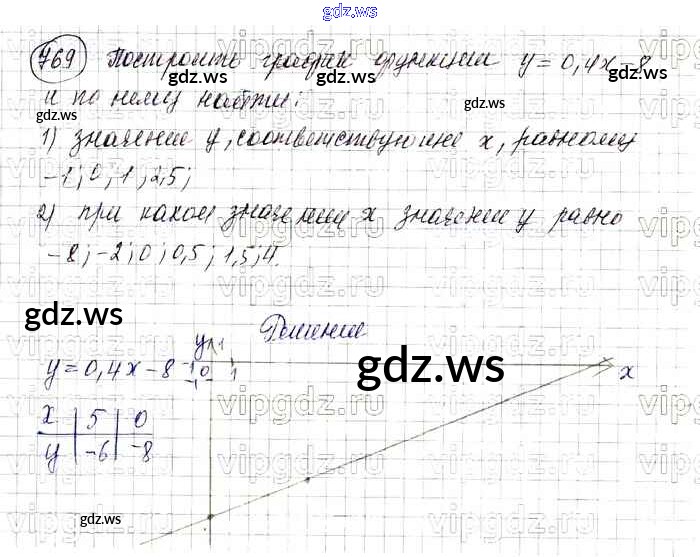 gdz.ws
769 Построить график функции y=0,4x-8
и по нему найти:
1) значение y, соответствующие x, равному
-1; 0; 1; 2,5;
2) при каком значении x значение y равно
-8; -2; 0; 0,5; 1,5; 4.
Решение
y=0,4x-8
x 5 0
y -6 -8
y 1
-1 0 1 x
-1
gdz.ws
gdz.ws
gdz.ws
gdz.ws
gdz.ws
gdz.ws
gdz.ws
gdz.ws
gdz.ws
vipgdz.ru
vipgdz.ru
vipgdz.ru
vipgdz.ru